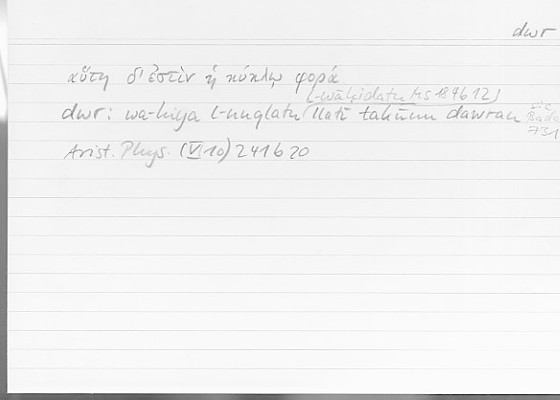 dwr
αὕτη δ' ἐστὶν ἡ κύκλῳ φορά
(l-wāḥidatu MS 187b12)
dwr: wa-hiya l-nuqlatu llatī takūnu dawran sic Bado 731
Arist. Phys. (VI 10) 241b20